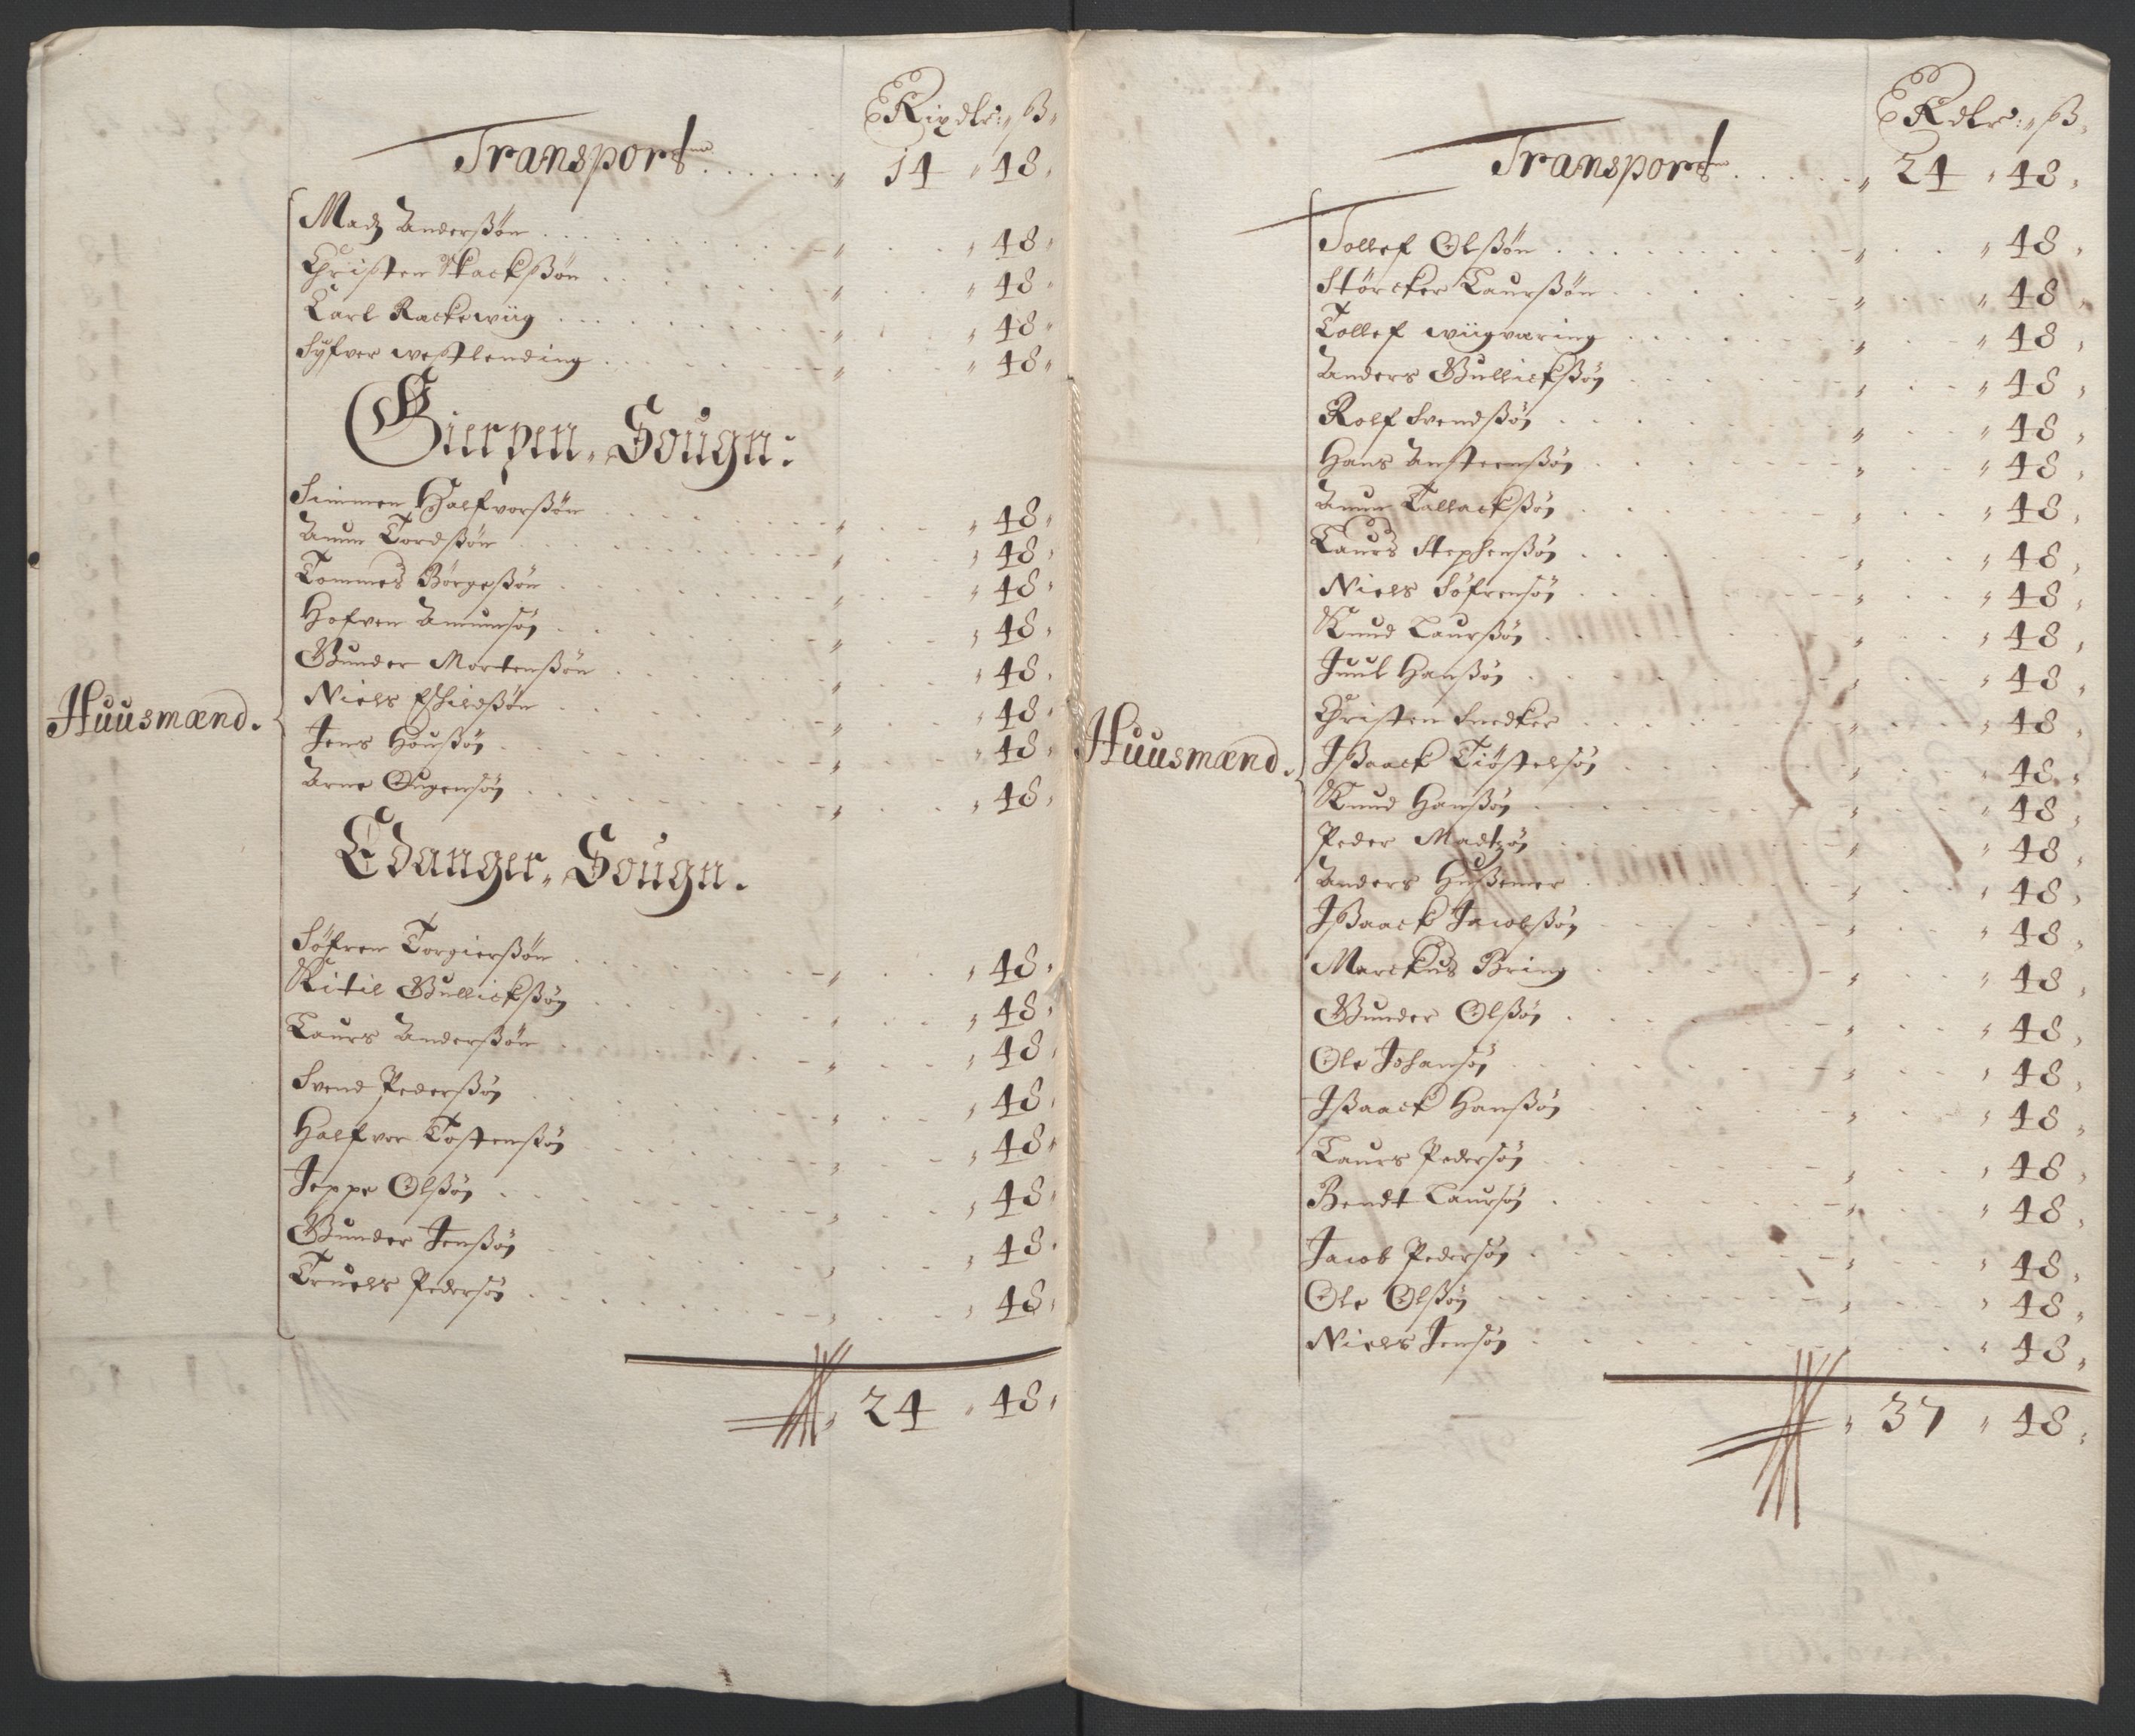 Rixdlr: ß
Transport 14 48
Madz Anderßøn 48
Christen Skackßøn 48
Carl Rackewiig 48
Syfver westlending 48
Gierpen Sougn:
Simmen Halfvorßøn 48
Amun Tordßøn 48
Tommes Børgeßøn 48
Hofven Amunsøn 48
Gunder Mortenßøn 48
Huusmænd.
Niels Eschildßøn 48
Jens Houßøn 48
Arne Engensøn 48
Edanger Sougn.
Søfren Torgierßøn 48
Kitil Gullickßøn 48
Laurs Anderßøn 48
Svend Pederßøn 48
Halfvor Tostenßøn 48
Jeppe Olßøn 48
Gunder Jenßøn 48
Truels Pedersøn 48
24 48
Rdlr: ß
Transport 24 48
Tollef Olßøn 48
Størcker Laurßøn 48
Tollef wiigværing 48
Anders Gullickßøn 48
Rolf Svendßøn 48
Hans Anstenßøn 48
Amun Tallackßøn 48
Laurs Stephenßøn 48
Niels Søfrensøn 48
Knud Laurßøn 48
Juul Hanßøn 48
Christen Snedker 48
Huusmænd.
Jßaack Tiøstelsøn 48
Knud Hanßøn 48
Peder Madtzøn 48
Anders Hußemer 48
Jßaack Jacobßøn 48
Marckus Bring 48
Gunder Olßøn 48
Ole Johansøn 48
Jßaack Hanßøn 48
Laurs Pedersøn 48
Bendt Laursøn 48
Jacob Pedersøn 48
Ole Olßøn 48
Niels Jensøn 48
37 48